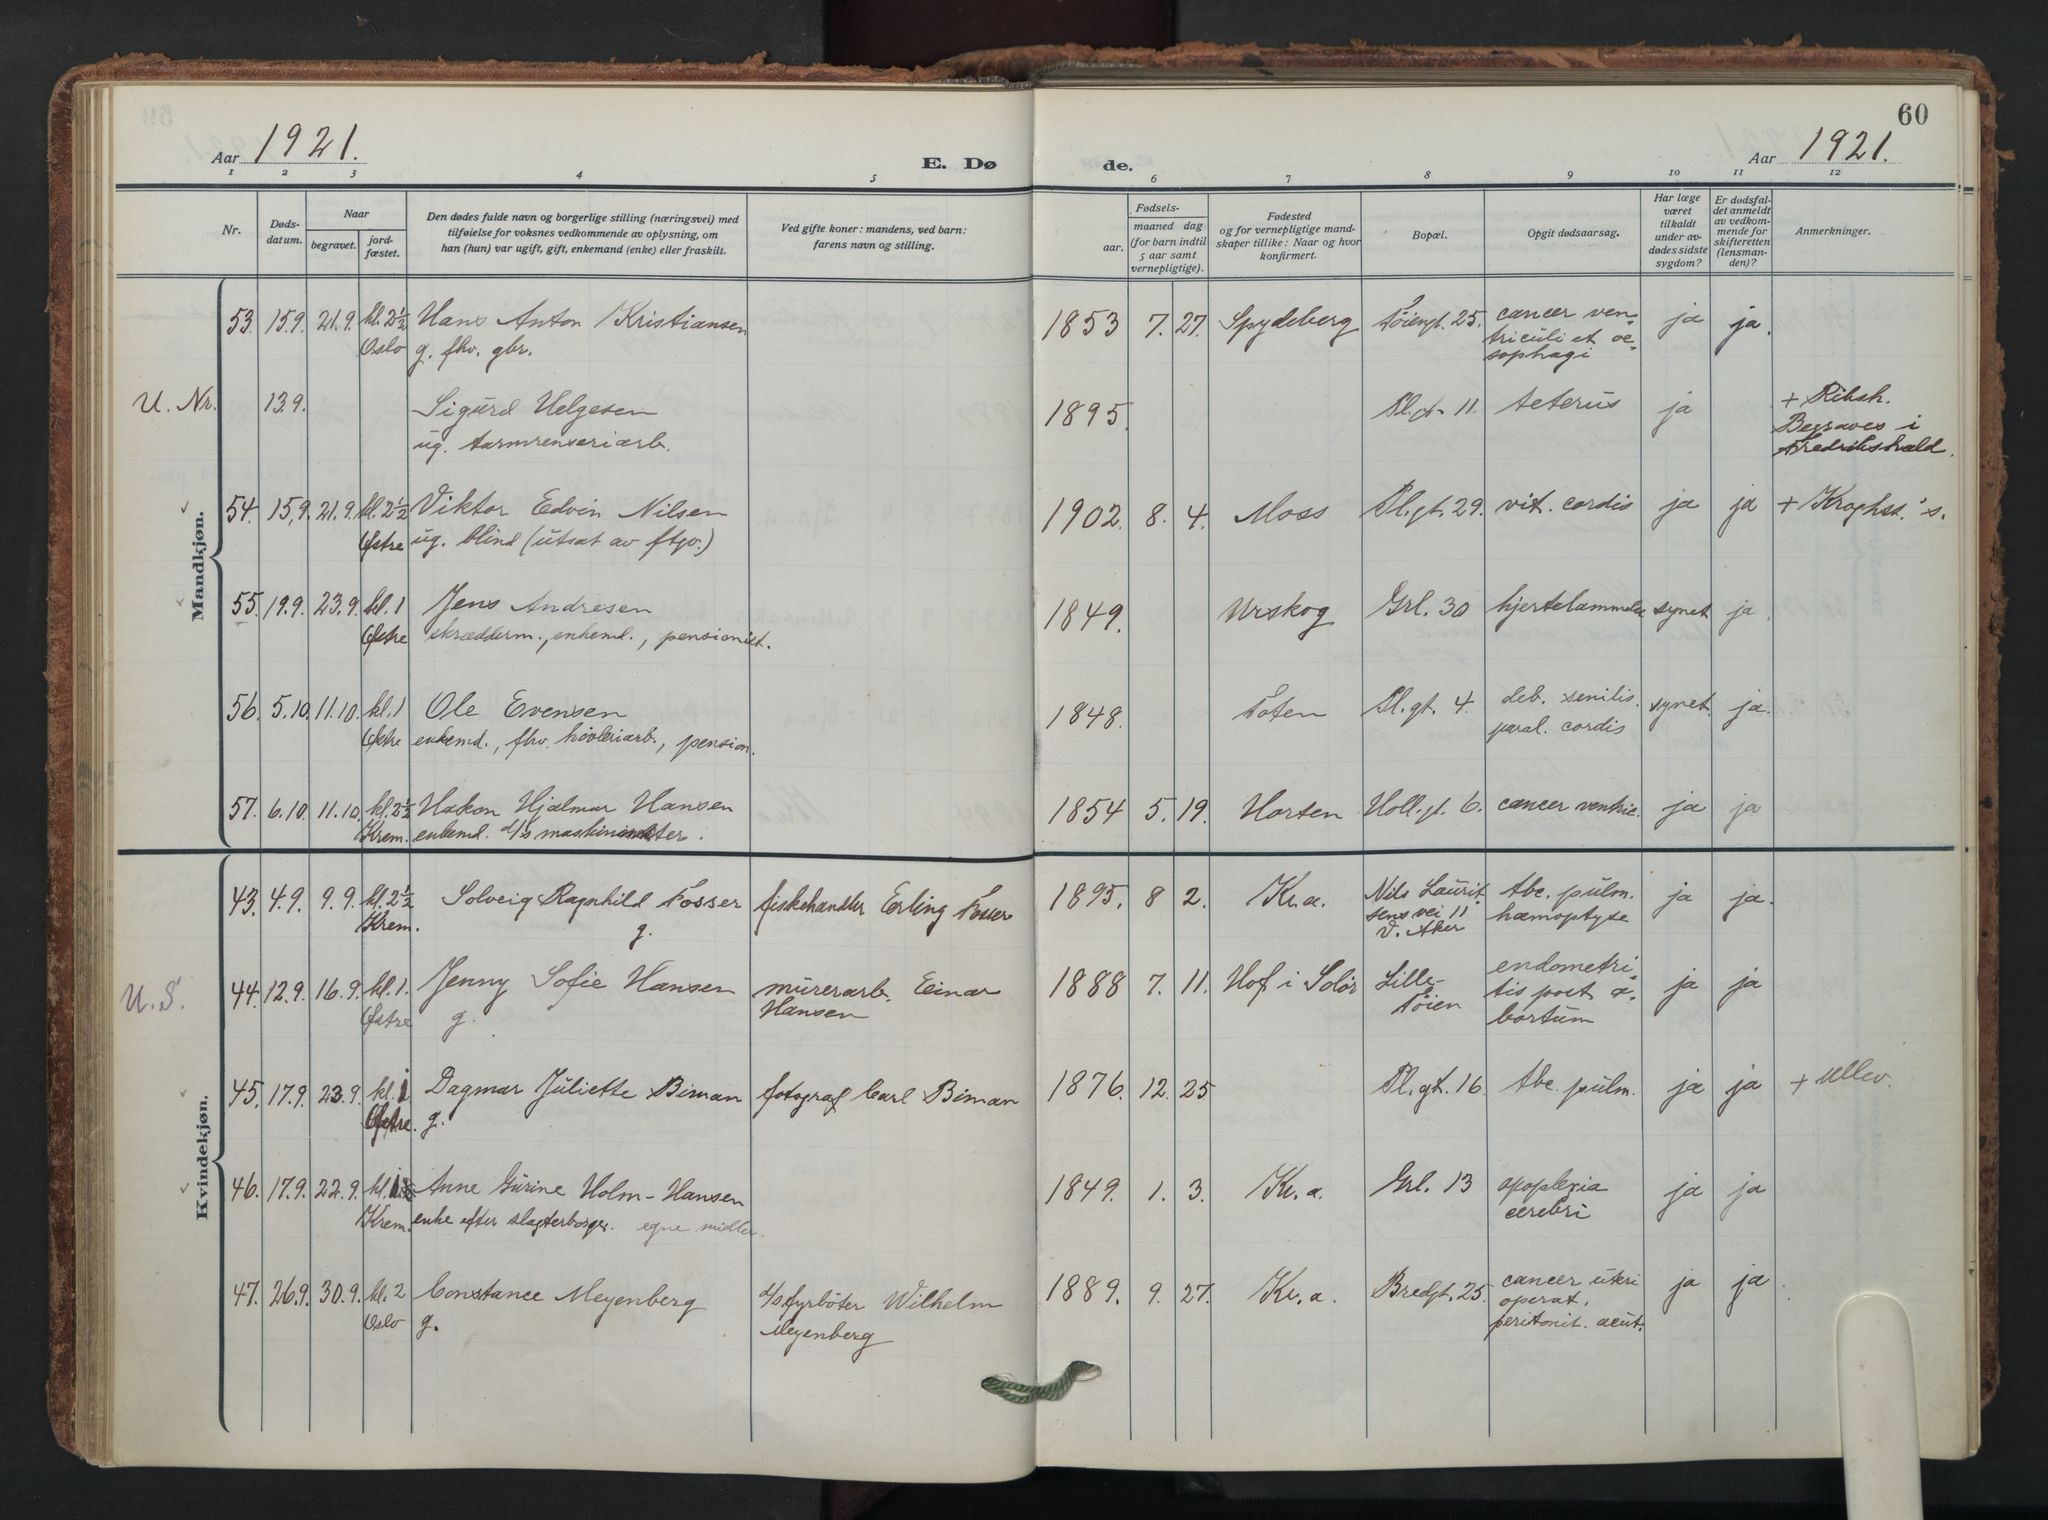 60
Aar 1921.
E. Dø de.
Aar 1921.
1 2 3 4 5 6 7 8 9 10 11 12
Nr.
Døds-
datum.
Naar
begravet.
jord-
fæstet.
Den dødes fulde navn og borgerlige stilling (næringsvei) med
tilføielse for voksnes vedkommende av oplysning, om
han (hun) var ugift, gift, enkemand (enke) eller fraskilt.
Ved gifte koner: mandens, ved barn:
farens navn og stilling.
Fødsels-
aar.
maaned dag
(for barn indtil
5 aar samt
vernepligtige).
Fødested
og for vernepligtige mand-
skaper tillike: Naar og hvor
konfirmert.
Bopæl.
Opgit dødsaarsag.
Har læge
været
tilkaldt
under av-
dødes sidste
sygdom?
Er dødsfal-
det anmeldt
av vedkom-
mende for
skifteretten
(lensman-
den)?
Anmerkninger.
Mandkjøn.
53. 15.9. 21.9. kl. 2½ Hans Anton Kristiansen 1853 7. 27. Spydeberg Tøiengt. 25. cancer ven- ja ja.
Oslo g. fhv. gbr. triculi et oe-
sophagi
U. Nr. 13.9. Sigurd Helgesen 1895. Pl.gt. 11. icterus ja + Riksh.
ug. tarmrenseriarb. Begraves i
Fredrikshald.
54. 15.9. 21.9. kl. 2½ Viktor Edvin Nilsen 1902. 8. 4. Moss Pl.gt. 29. vit. cordis ja ja + Kroghss.'s.
Østre ug. blind (utsat av ftgv.)
55. 19.9. 23.9. kl. 1 Jens Andresen 1849. Urskog Grl. 30 hjertelammelse synet ja.
Østre skrædderm., enkemd., pensionist.
56. 5.10. 11.10. kl. 1 Ole Evensen 1848. Toten Pl.gt. 4. deb. senilis. synet. ja.
Østre enkemd., fhv. høvleriarb., pension. paral. cordis
57. 6.10. 11.10. kl. 2½ Hakon Hjalmar Hansen 1854 5. 19. Horten Holl.gt. 6. cancer ventric. ja ja
Krem. enkemd. d/s maskinister.
Kvindekjøn.
43. 4.9. 9.9. kl. 2½ Solveig Ragnhild Fosser fiskehandler Erling Fosser 1895. 8 2. Kr.a. Nils Laurit- tbc. pulm. ja ja.
Krem. g. sens vei 11 hæmoptyse
V. Aker
U.S. 44. 12.9. 16.9. kl. 1. Jenny Sofie Hansen murerarb. Einar 1888 7. 11. Hof i Solør Lille- endometri- ja ja
Østre g. Hansen Tøien tis post a-
bortum
45. 17.9. 23.9. kl. 1 Dagmar Juliette Biman fotograf Carl Biman 1876. 12. 25 Pl.gt. 16 tbc. pulm. ja ja + Ullev.
Østre. g.
46. 17.9. 22.9. kl. 1 Anne Gurine Holm-Hansen 1849. 1. 3. Kr.a. Grl. 13 apoplexia ja ja
Krem. enke efter slagterborger. egne midler. cerebri
47. 26.9. 30.9. kl. 2 Constance Meyenberg d/s fyrbøter Wilhelm 1889. 9. 27. Kr.a. Bredgt. 25. cancer uteri ja ja.
Oslo g. Meyenberg operat.
peritonit. acut.